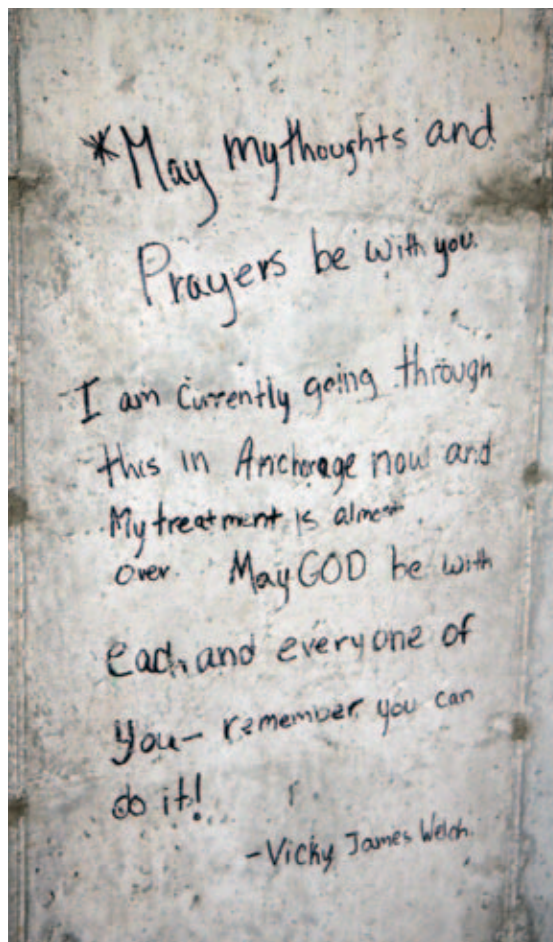 *May my thoughts and
Prayers be with you.
I am currently going through
this in Anchorage now and
My treatment is almost
over. May GOD be with
each and everyone of
you- remember you can
do it!
-Vicky James Welch